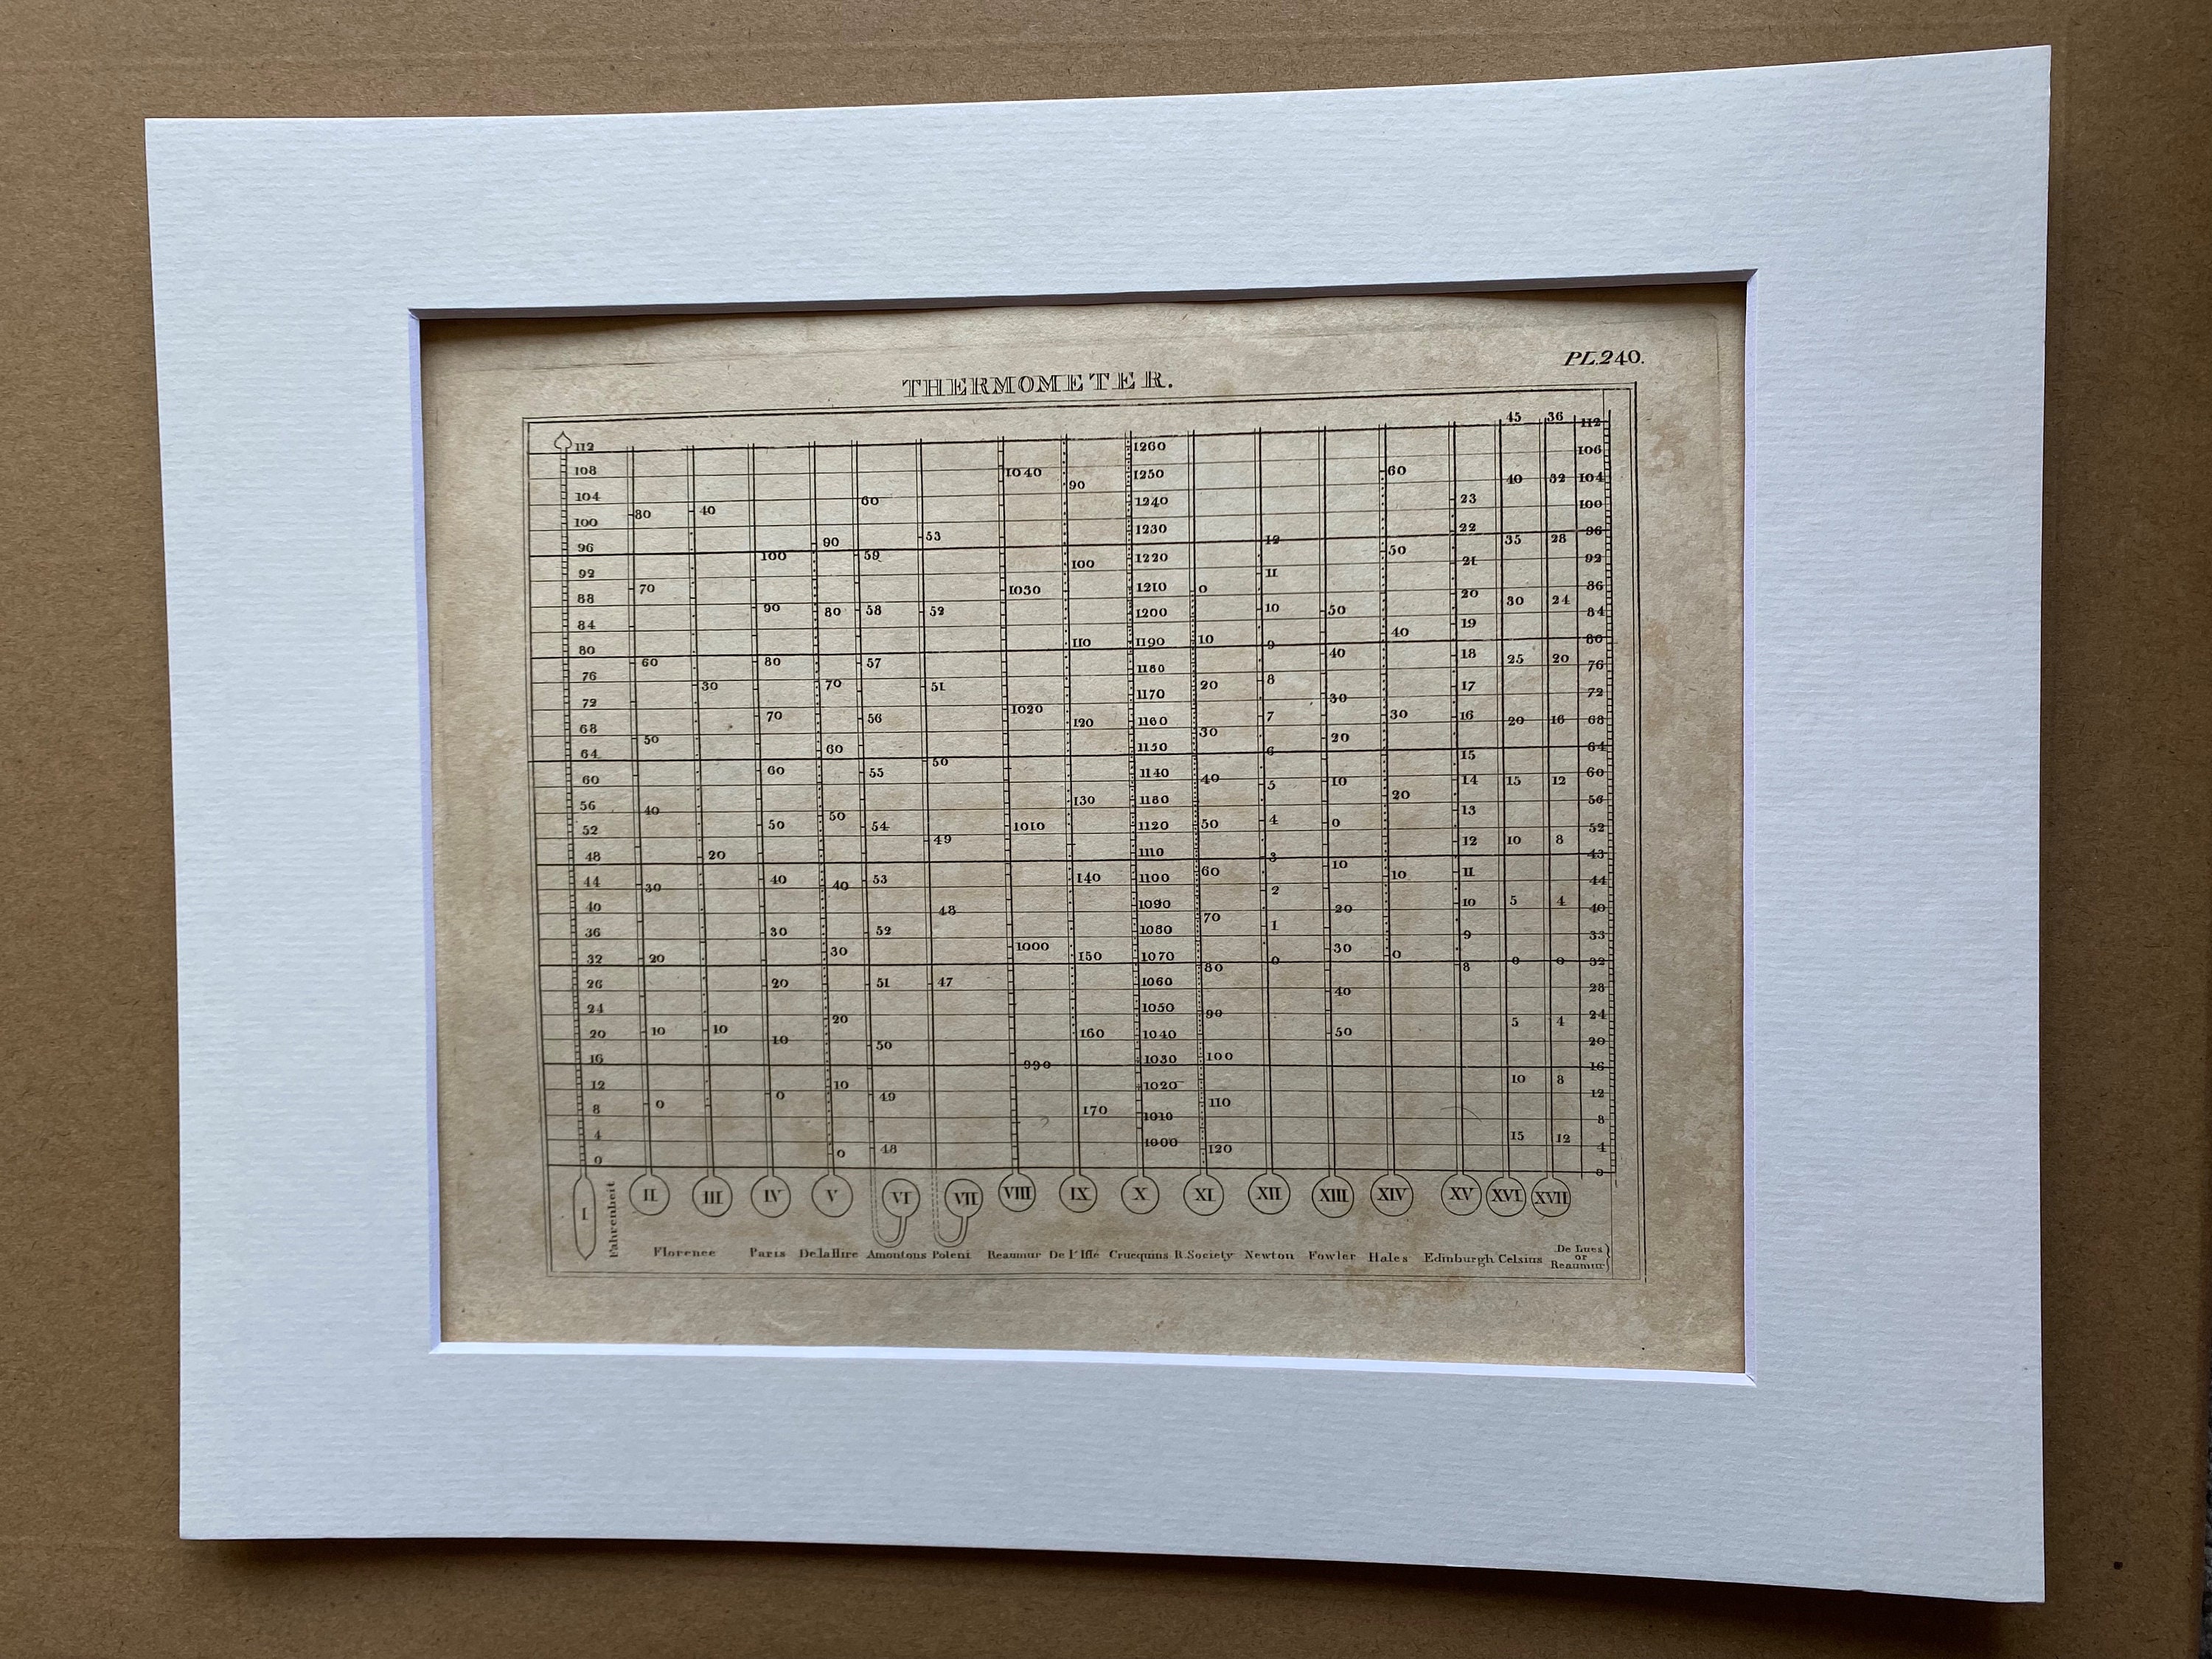 PL.240.
THERMOMETER.
112 108 104 100 96 92 88 84 80 76 72 68 64 60 56 52 48 44 40 36 32 26 24 20 16 12 8 4 0
80 70 60 50 40 30 20 10 0
40 30 20 10
100 90 80 70 60 50 40 30 20 10 0
90 80 70 60 50 40 30 20 10 0
60 59 58 57 56 55 54 53 52 51 50 49 48
53 52 51 50 49 48 47
1040 1030 1020 1010 1000 990
90 100 110 120 130 140 150 160 170
1260 1250 1240 1230 1220 1210 1200 1190 1180 1170 1160 1150 1140 1130 1120 1110 1100 1090 1080 1070 1060 1050 1040 1030 1020 1010 1000
0 10 20 30 40 50 60 70 80 90 100 110 120
12 11 10 9 8 7 6 5 4 3 2 1 0
50 40 30 20 10 0 10 20 30 40 50
60 50 40 30 20 10 0
23 22 21 20 19 18 17 16 15 14 13 12 11 10 9 8
45 40 35 30 25 20 15 10 5 0 5 10 15
36 32 28 24 20 16 12 8 4 0 4 8 12
112 106 104 100 96 92 86 84 80 76 72 68 64 60 56 52 43 44 40 33 32 28 24 20 16 12 8 4 0
I II III IV V VI VII VIII IX X XI XII XIII XIV XV XVI XVII
Fahrenheit
Florence Paris De la Hire Amontons Poleni Reaumur De l'Isle Crucquins R. Society Newton Fowler Hales Edinburgh Celsius
De Lucs
or
Reaumur